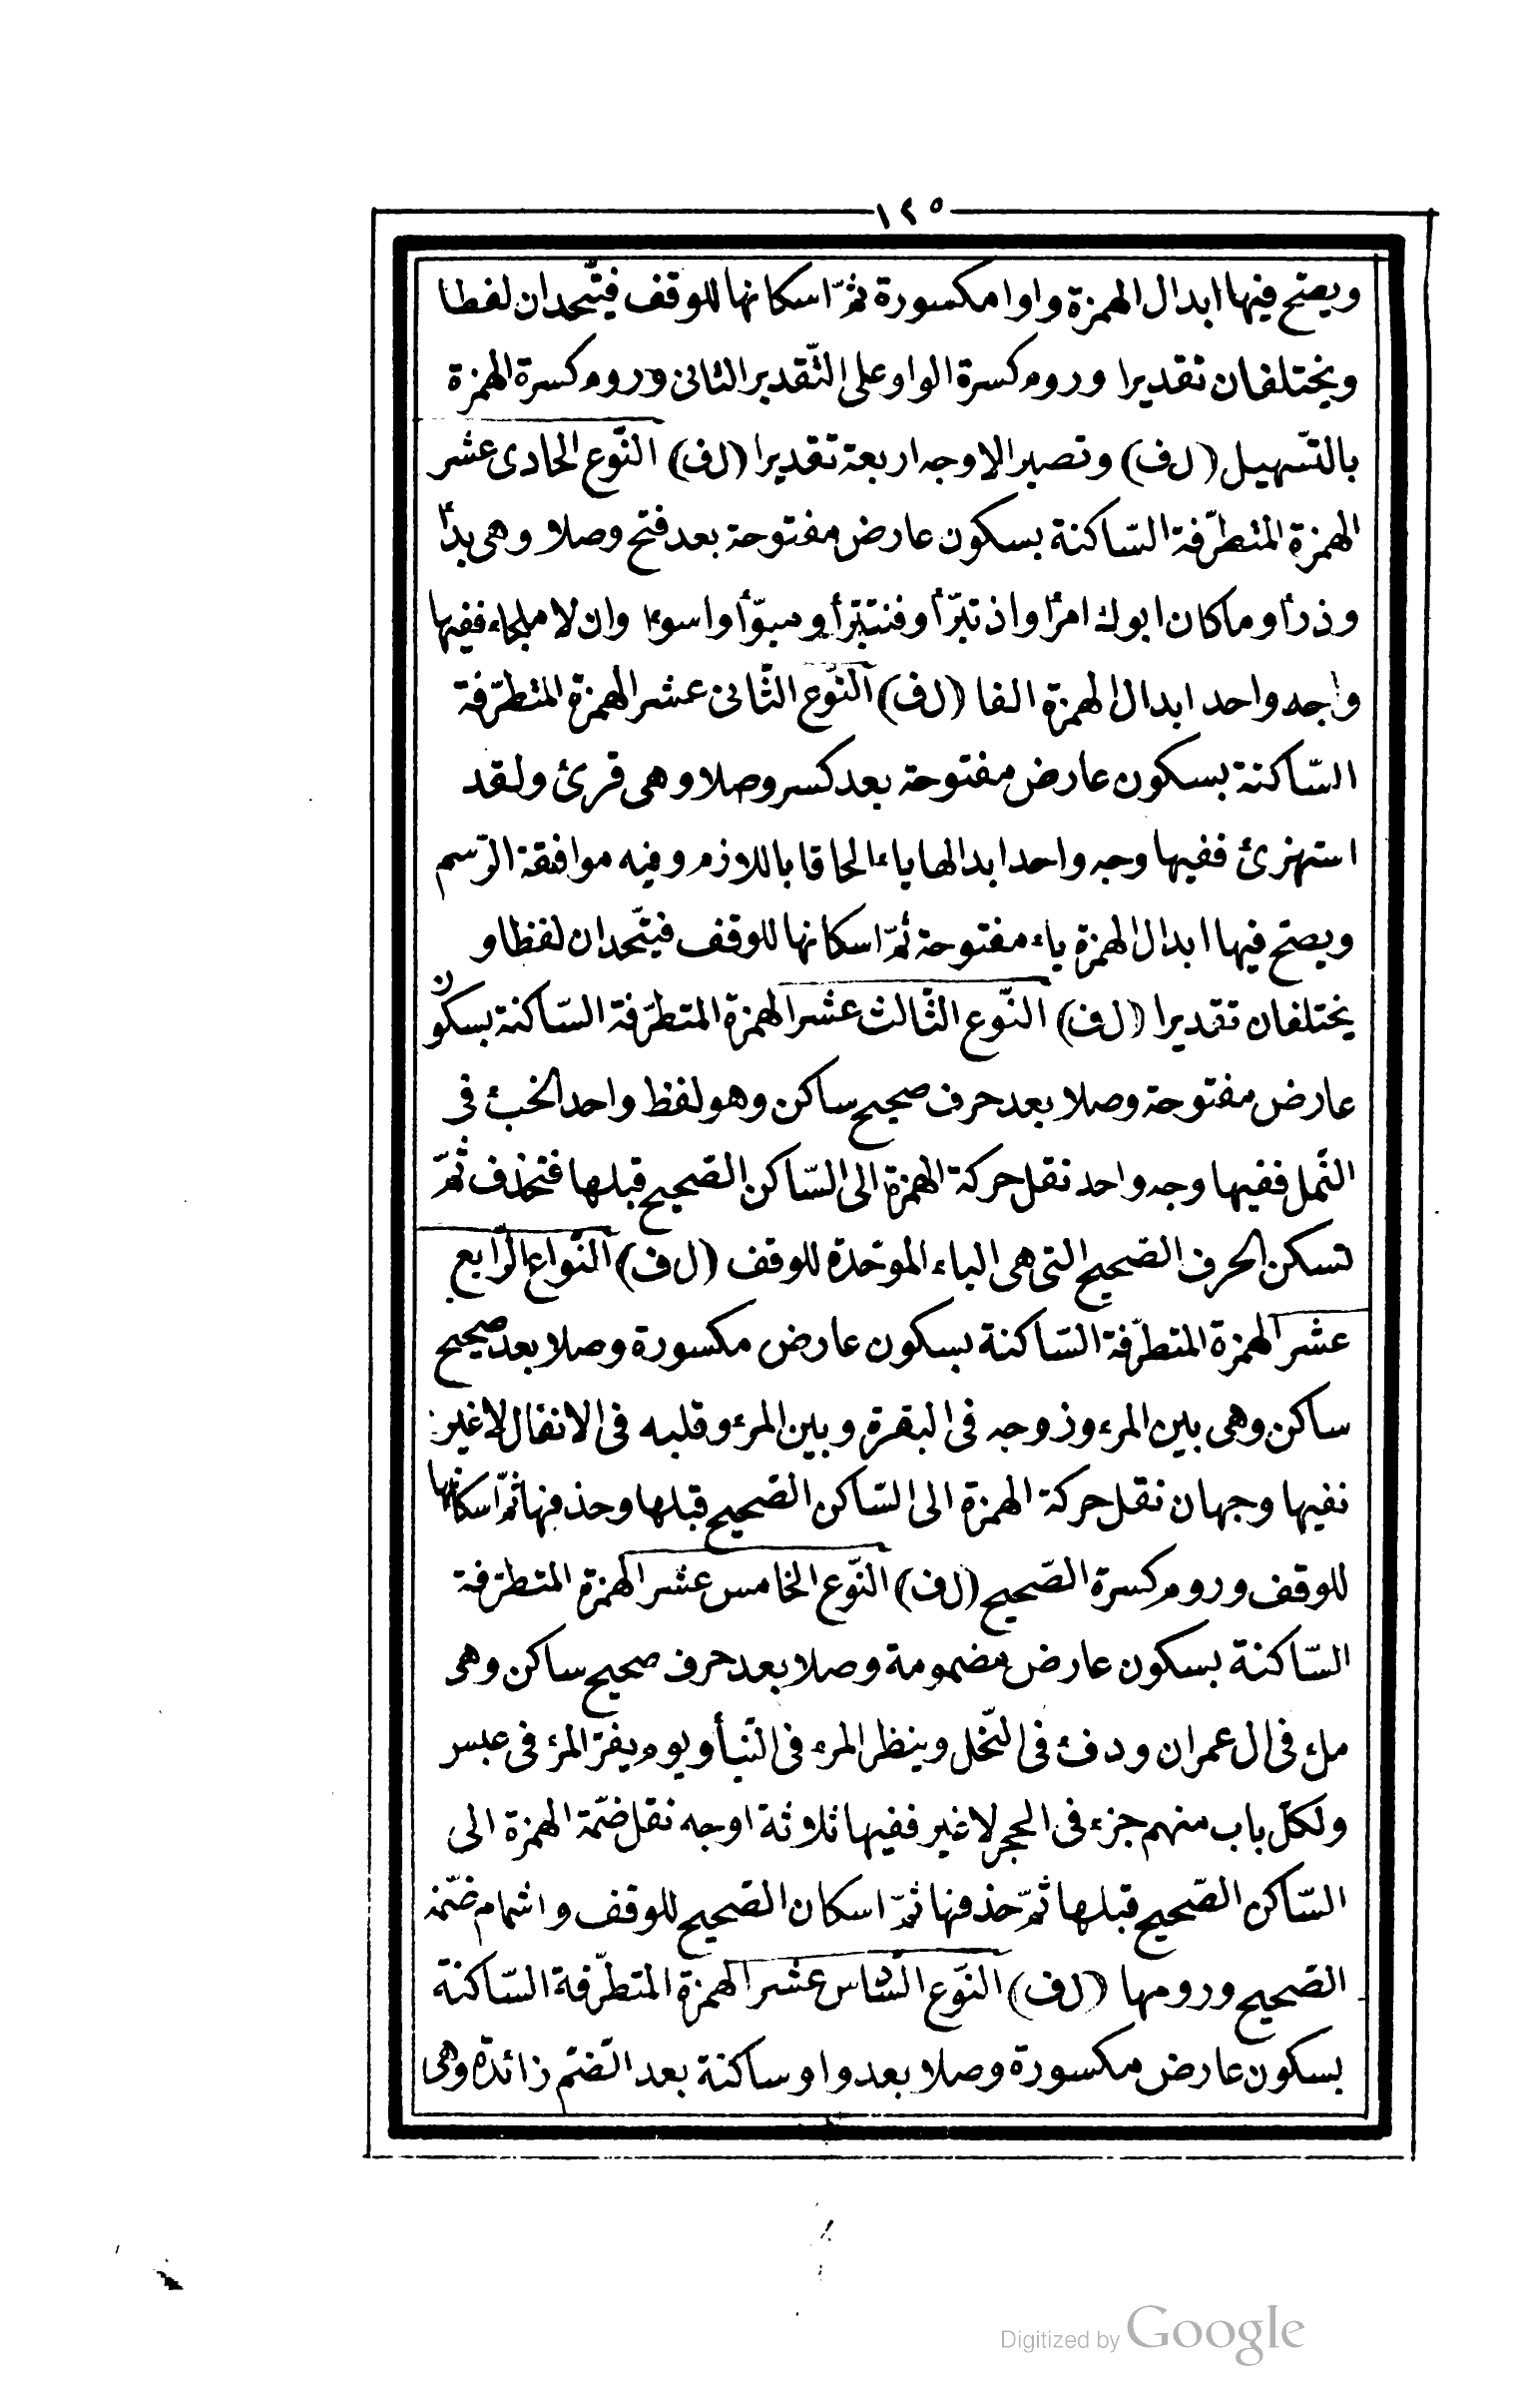 ١٢٥
ويصح فيها ابدال الهمزة واوا مكسورة ثمّ اسكانها للوقف فيتّحدان لفظا
ويختلفان تقديرا وروم كسرة الواو على التّقدير الثانى وروم كسرة الهمزة
بالتّسهيل (ل ف) وتصير الاوجه اربعة تقديرا (ل ف) النّوع الحادى عشر
الهمزة المتطرّفة السّاكنة بسكون عارض مفتوحة بعد فتح وصلا وهى بدأ
وذرأ وما كان ابوك امرأ واذ تبرّأ وفنتبرّأ ومبوّأ واسوء وان لا ملجاء ففيها
واجه واحد ابدال الهمزة الفا (ل ف) النّوع الثّانى عشر الهمزة المتطرّفة
السّاكنة بسكون عارض مفتوحة بعد كسر وصلا وهى قرئ ولقد
استهزئ ففيها وجه واحد ابدالها ياء الحاقا باللازم وفيه موافقة الرّسم
ويصح فيها ابدال الهمزة ياء مفتوحة ثمّ اسكانها للوقف فيتّحدان لفظا و
يختلفان تقديرا (ل ف) النّوع الثّالث عشر الهمزة المتطرّفة السّاكنة بسكون
عارض مفتوحة وصلا بعد حرف صحيح ساكن وهو لفظ واحد الخبء فى
النّمل ففيها وجه واحد نقل حركة الهمزة الى السّاكن الصّحيح قبلها فتحذف ثمّ
تسكن الحرف الصّحيح التى هى الباء الموحّدة للوقف (ل ف) النّواع الرّابع
عشر الهمزة المتطرّفة السّاكنة بسكون عارض مكسورة وصلا بعد صحيح
ساكن وهى بين المرء وزوجه فى البقرة وبين المرء وقلبه فى الانفال لا غير
نفيها وجهان نقل حركة الهمزة الى السّاكن الصّحيح قبلها وحذفها ثمّ اسكانها
للوقف وروم كسرة الصّحيح (ل ف) النّوع الخامس عشر الهمزة المتطرّفة
السّاكنة بسكون عارض مضمومة وصلا بعد حرف صحيح ساكن وهى
ملء فى ال عمران ودفء فى النّحل وينظر المرء فى النّبأ ويوم يفرّ المرء فى عبس
ولكلّ باب منهم جزء فى الحجر لا غير ففيها ثلاثة اوجه نقل ضمّة الهمزة الى
السّاكن الصّحيح قبلها ثمّ حذفها ثمّ اسكان الصّحيح للوقف واشمام ضمّة
الصّحيح ورومها (ل ف) النّوع السّادس عشر الهمزة المتطرّفة السّاكنة
بسكون عارض مكسورة وصلا بعد واو ساكنة بعد الضّم زائدة وهى
Digitized by Google